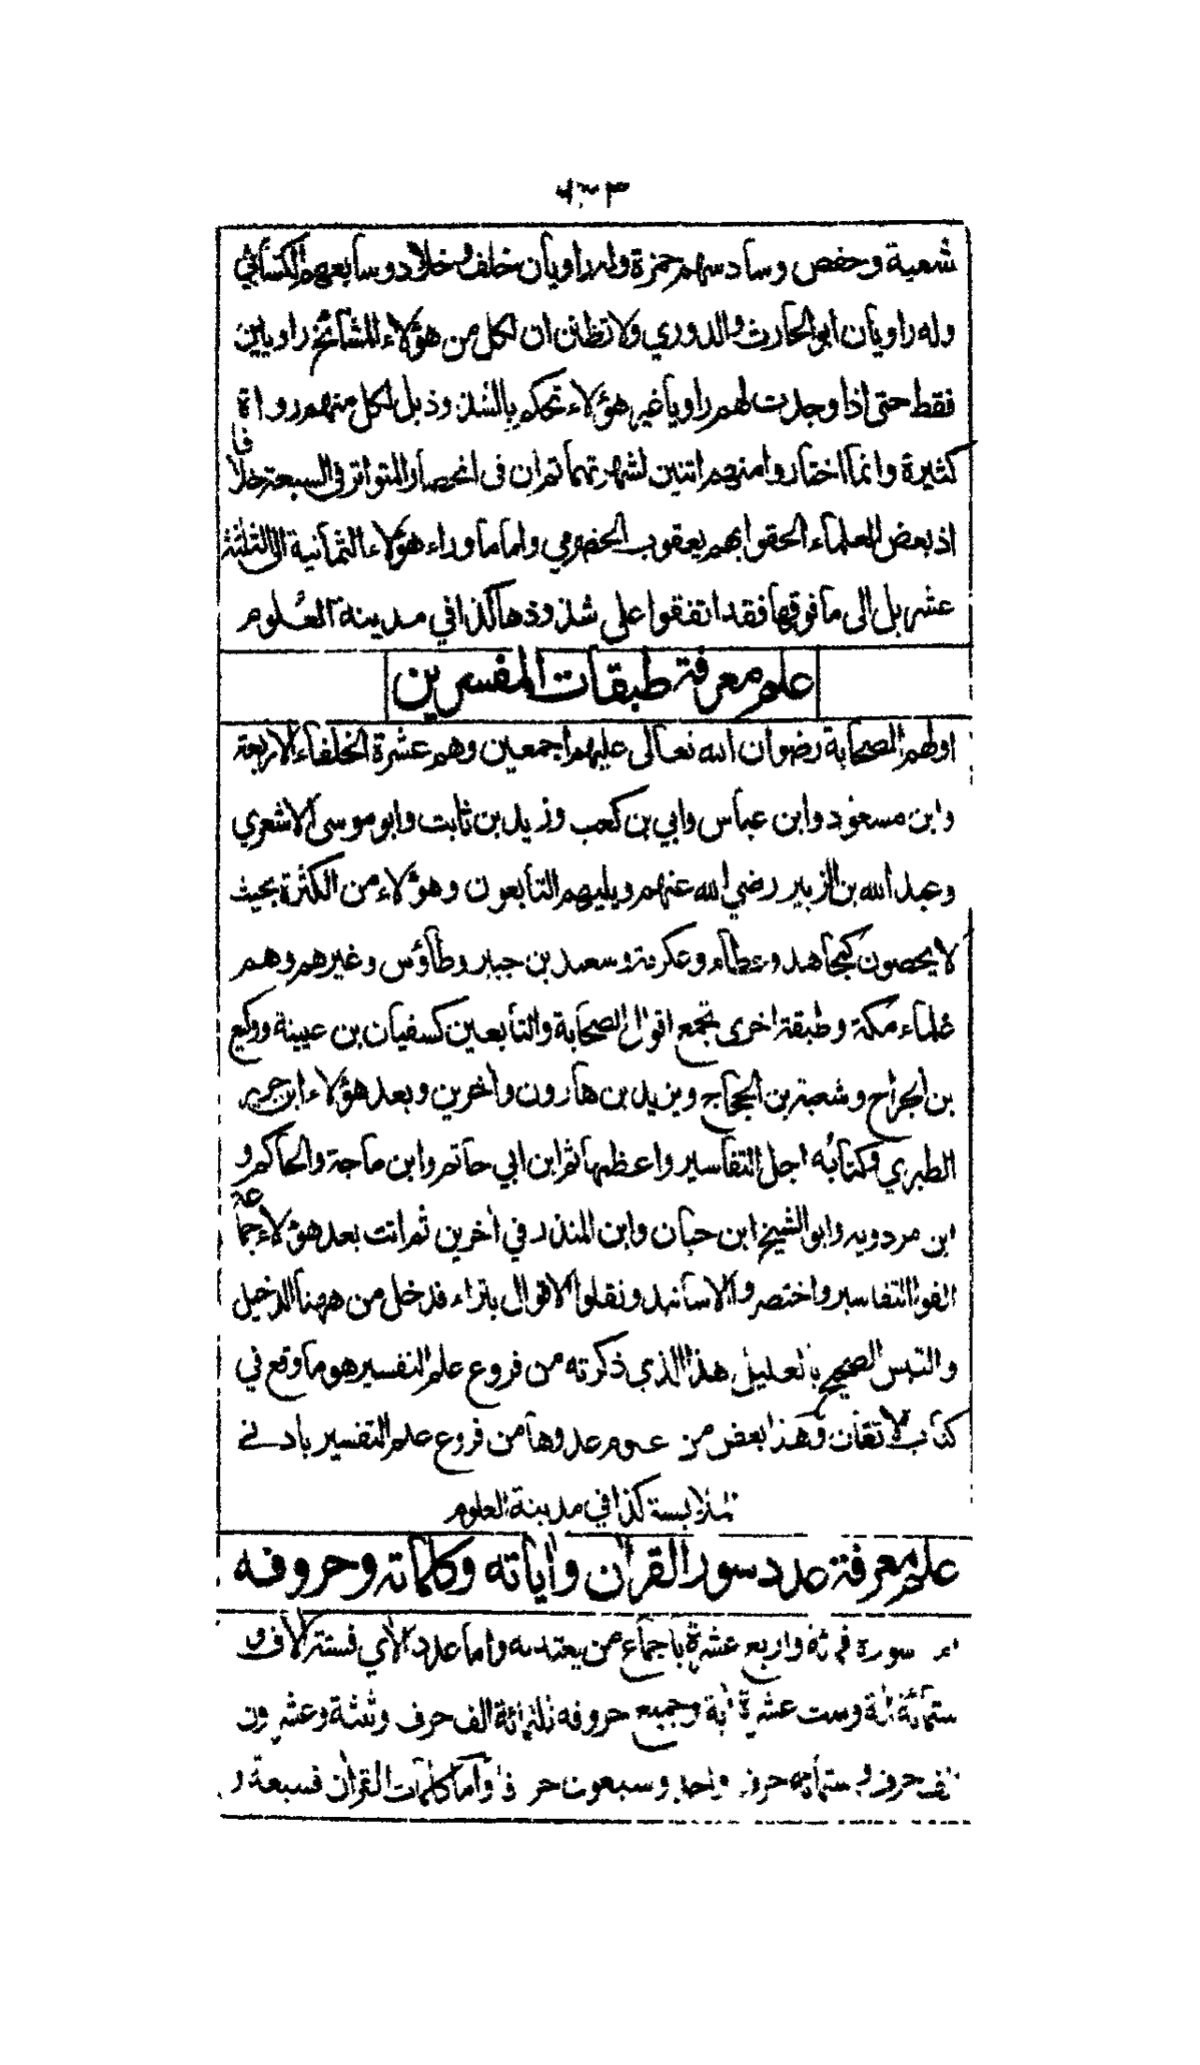 شعبة وحفص وسادسهم حمزة وله راويان خلف وخلاد وسابعهم الكسائي
وله راويان ابو الحارث والدوري ولا تظنن ان لكل من هؤلاء المشائخ راويين
فقط حتى اذا وجدت لهم راويا غير هؤلاء تحكم بالشذوذ بل لكل منهم رواة
كثيرة وانما اختاروا منهم اثنين لشهرتهما ثم ان في انحصار المتواتر في السبعة خلافا
اذ بعض العلماء الحقوا بهم يعقوب الحضرمي واما ما وراء هؤلاء الثمانية الى الثلثة
عشر بل الى ما فوقها فقد اتفقوا على شذوذها كذا في مدينة العلوم
علم معرفة طبقات المفسرين
اولهم الصحابة رضوان الله تعالى عليهم اجمعين وهم عشرة الخلفاء الاربعة
وابن مسعود وابن عباس وابي بن كعب وزيد بن ثابت وابو موسى الاشعري
وعبد الله بن الزبير رضي الله عنهم ويليهم التابعون وهؤلاء من الكثرة بحيث
لا يحصون كمجاهد وعطاء وعكرمة وسعيد بن جبير وطاؤس وغيرهم وهم
علماء مكة وطبقة اخرى تجمع اقوال الصحابة والتابعين كسفيان بن عيينة ووكيع
بن الجراح وشعبة بن الحجاج ويزيد بن هارون وآخرين وبعد هؤلاء ابن جرير
الطبري وكتابه اجل التفاسير واعظمها ثم ابن ابي حاتم وابن ماجة والحاكم و
ابن مردويه وابو الشيخ ابن حبان وابن المنذر في آخرين ثم اتت بعد هؤلاء جماعة
الفوا التفاسير واختصروا الاسانيد ونقلوا الاقوال بتراء فدخل من ههنا الدخيل
والتبس الصحيح بالعليل هذا الذي ذكرته من فروع علم التفسير هو ما وقع في
كتاب الاتقان وهذا بعض من علوم عدوها من فروع علم التفسير بادنے
ملابسة كذا في مدينة العلوم
علم معرفة عدد سور القرآن وآياته وكلماته وحروفه
سورة واربع عشرة باجماع من يعتد به واما عدد الآي فستة آلاف و
ستمائة آية وست عشرة آية وجميع حروفه ثلثمائة الف حرف وثلثة وعشرون
الف حرف وستمائة حرف واحد وسبعون حرفا واما كلمات القرآن فسبعة و